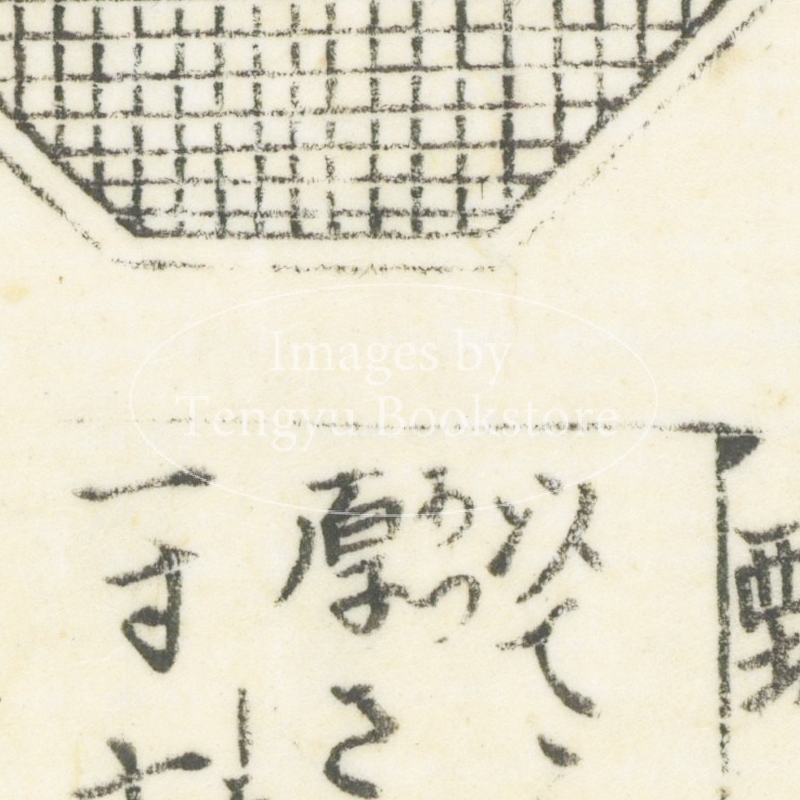 Images by
Tengyu Bookstore
以て、
厚さ
あつ
一寸